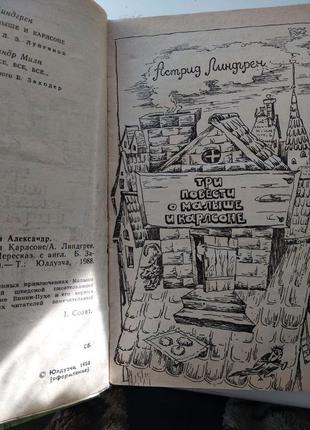 индгрен
АЛЫШЕ И КАРЛСОНЕ
Л. З. Лунгиной
ндр Милн
СЕ, ВСЕ, ВСЕ...
ого Б. Заходер
н Александр.
и Карлсоне/А. Линдгрен.
Пересказ. с англ. Б. За-
— Т.: Юлдузча, 1988.
енных приключениях Малыша
й шведской писательницей
ие Винни-Пухе и его верных
х читателей замечательный
I. Соавт.
Сб.
© Юлдузча, 1988
(оформление)
Астрид Линдгрен
ТРИ
ПОВЕСТИ
О МАЛЫШЕ
И КАРЛСОНЕ